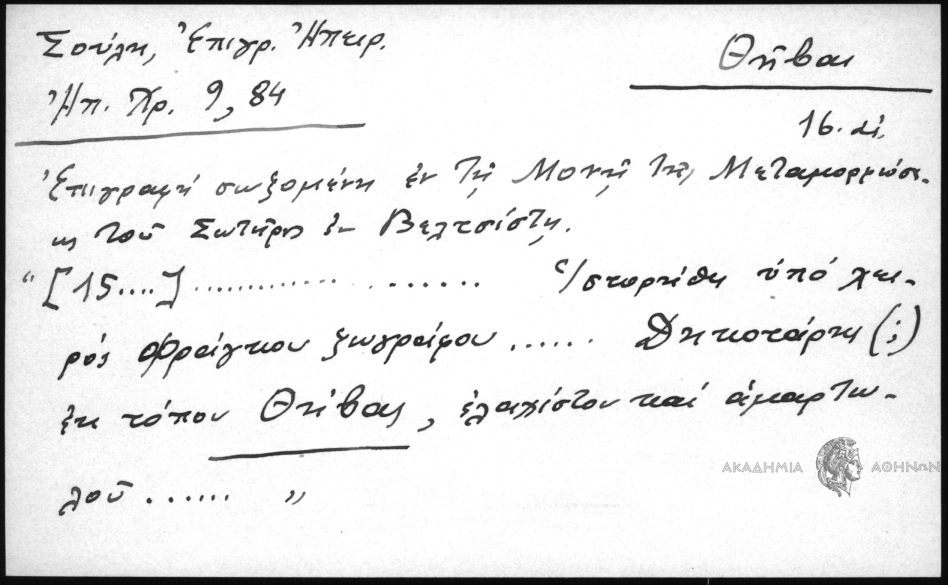 Σούλη, Ἐπιγρ. Ἠπειρ.
Ἠπ. Χρ. 9, 84
Θῆβαι
16. αἰ.
Ἐπιγραφή σωζομένη ἐν τῇ Μονῇ τῆς Μεταμορφώσε-
ως τοῦ Σωτῆρος ἐν Βελτσίστῃ.
“[15....] ................... Ἱστορήθη ὑπό χει-
ρός Φράγκου ζωγράφου ...... Δηκοτάρη (;)
ἐκ τόπου Θήβας, ἐλαχίστου καί ἁμαρτω-
λοῦ ...... ”
ΑΚΑΔΗΜΙΑ ΑΘΗΝΩΝ